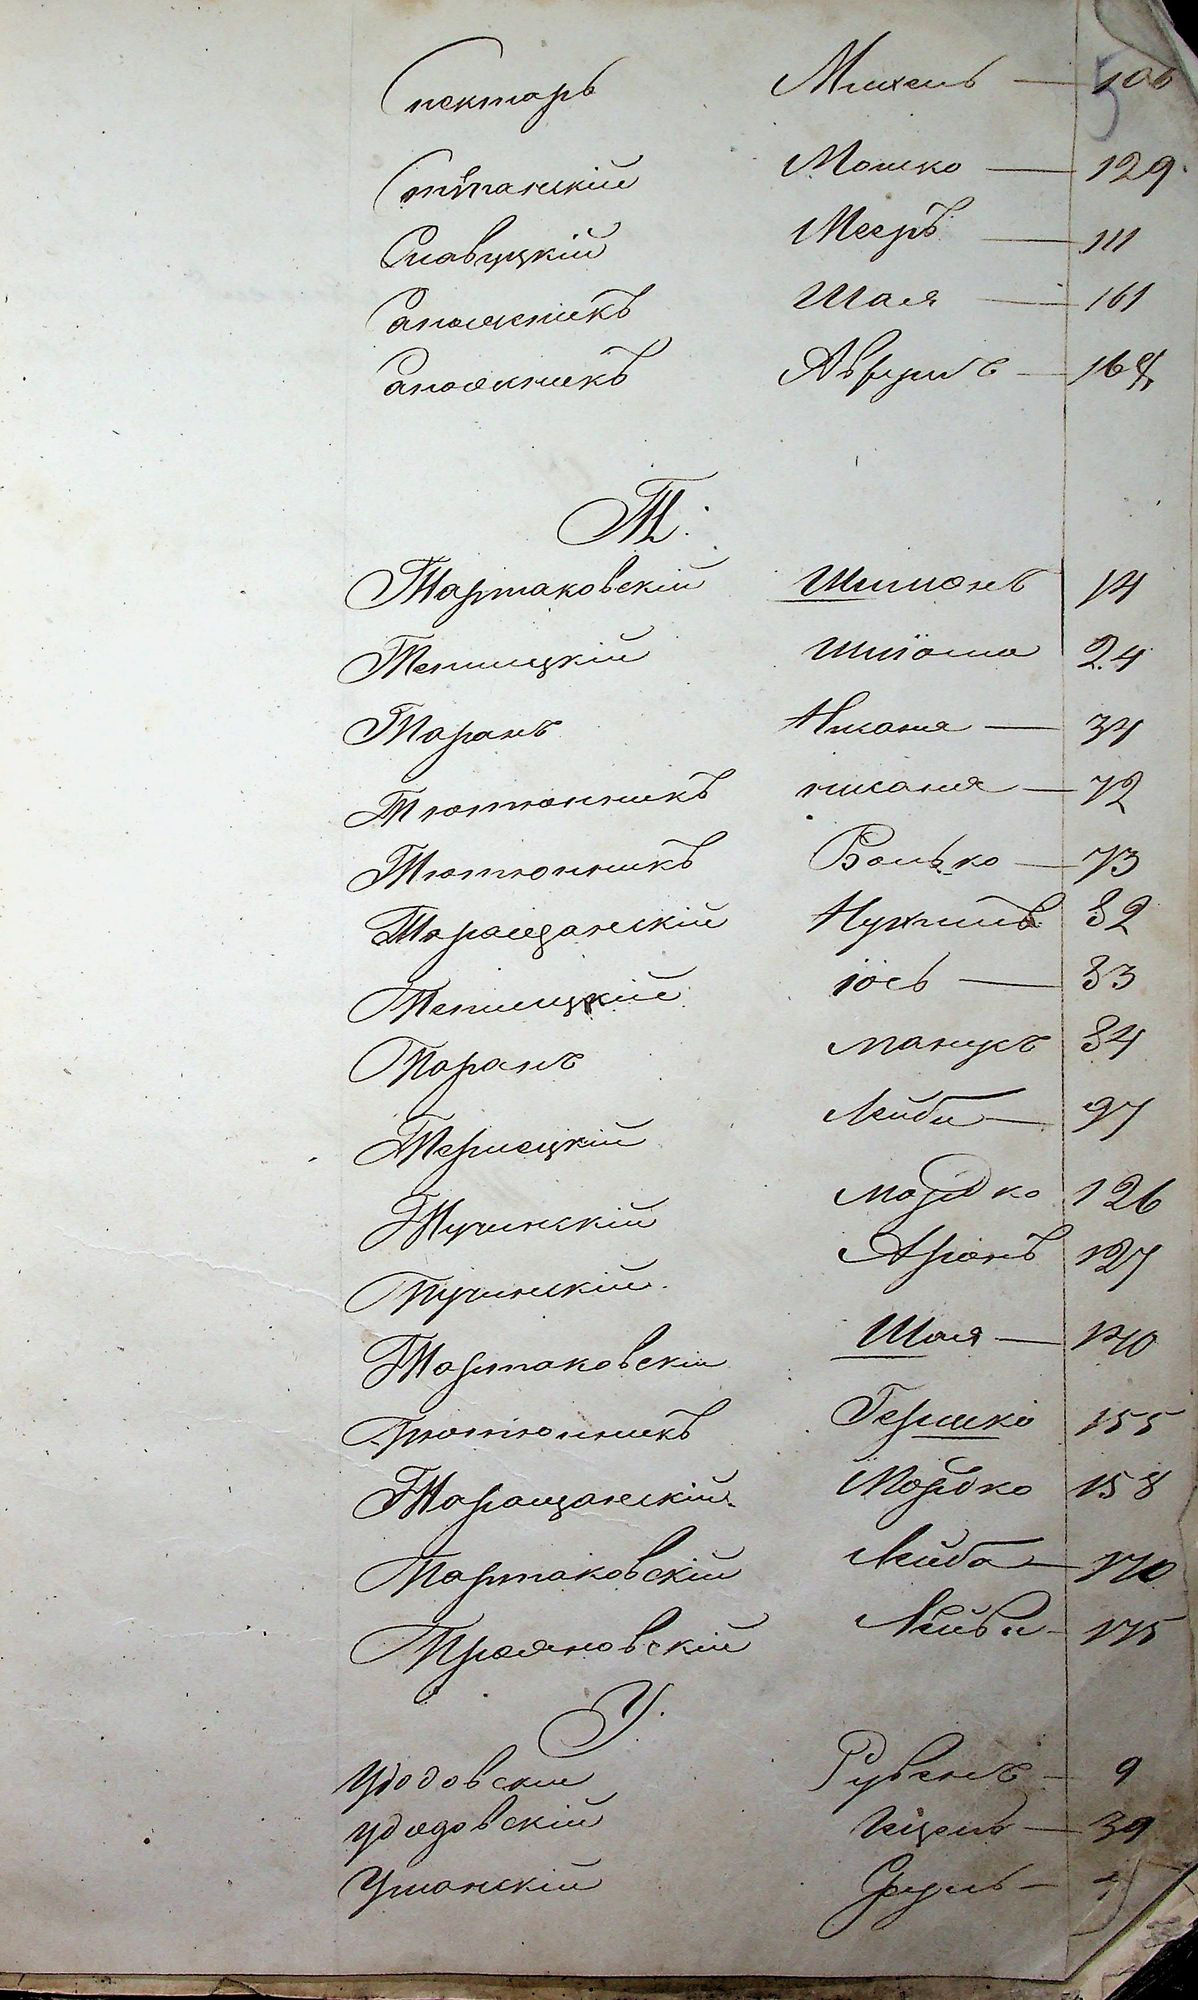 Спектарь Михель — 106
5
Стіпанскій Мошко — 129
Славуцкій Мееръ — 111
Сапожникъ Шая — 161
Сапожникъ Аврумъ — 164
Т.
Тартаковскій Шимонъ 14
Теплицкій Шліома 24
Таранъ Нисонъ — 34
Тютюнникъ — 72
Тютюнникъ Волько — 73
Таращанскій Нухимъ 82
Теплицкій Іось — 83
Таранъ 84
Терлецкій Лейба — 97
Тучинскій Мордко 126
Тучинскій Аронъ 127
Тартаковскій Шая — 140
Тютюнникъ Гершко 155
Таращанскій Мордко 158
Тартаковскій Лейба — 170
Трояновскій Лейба — 175
У.
Удодовскій Рувенъ — 9
Удодовскій Ицель — 39
Уманскій Сруль —